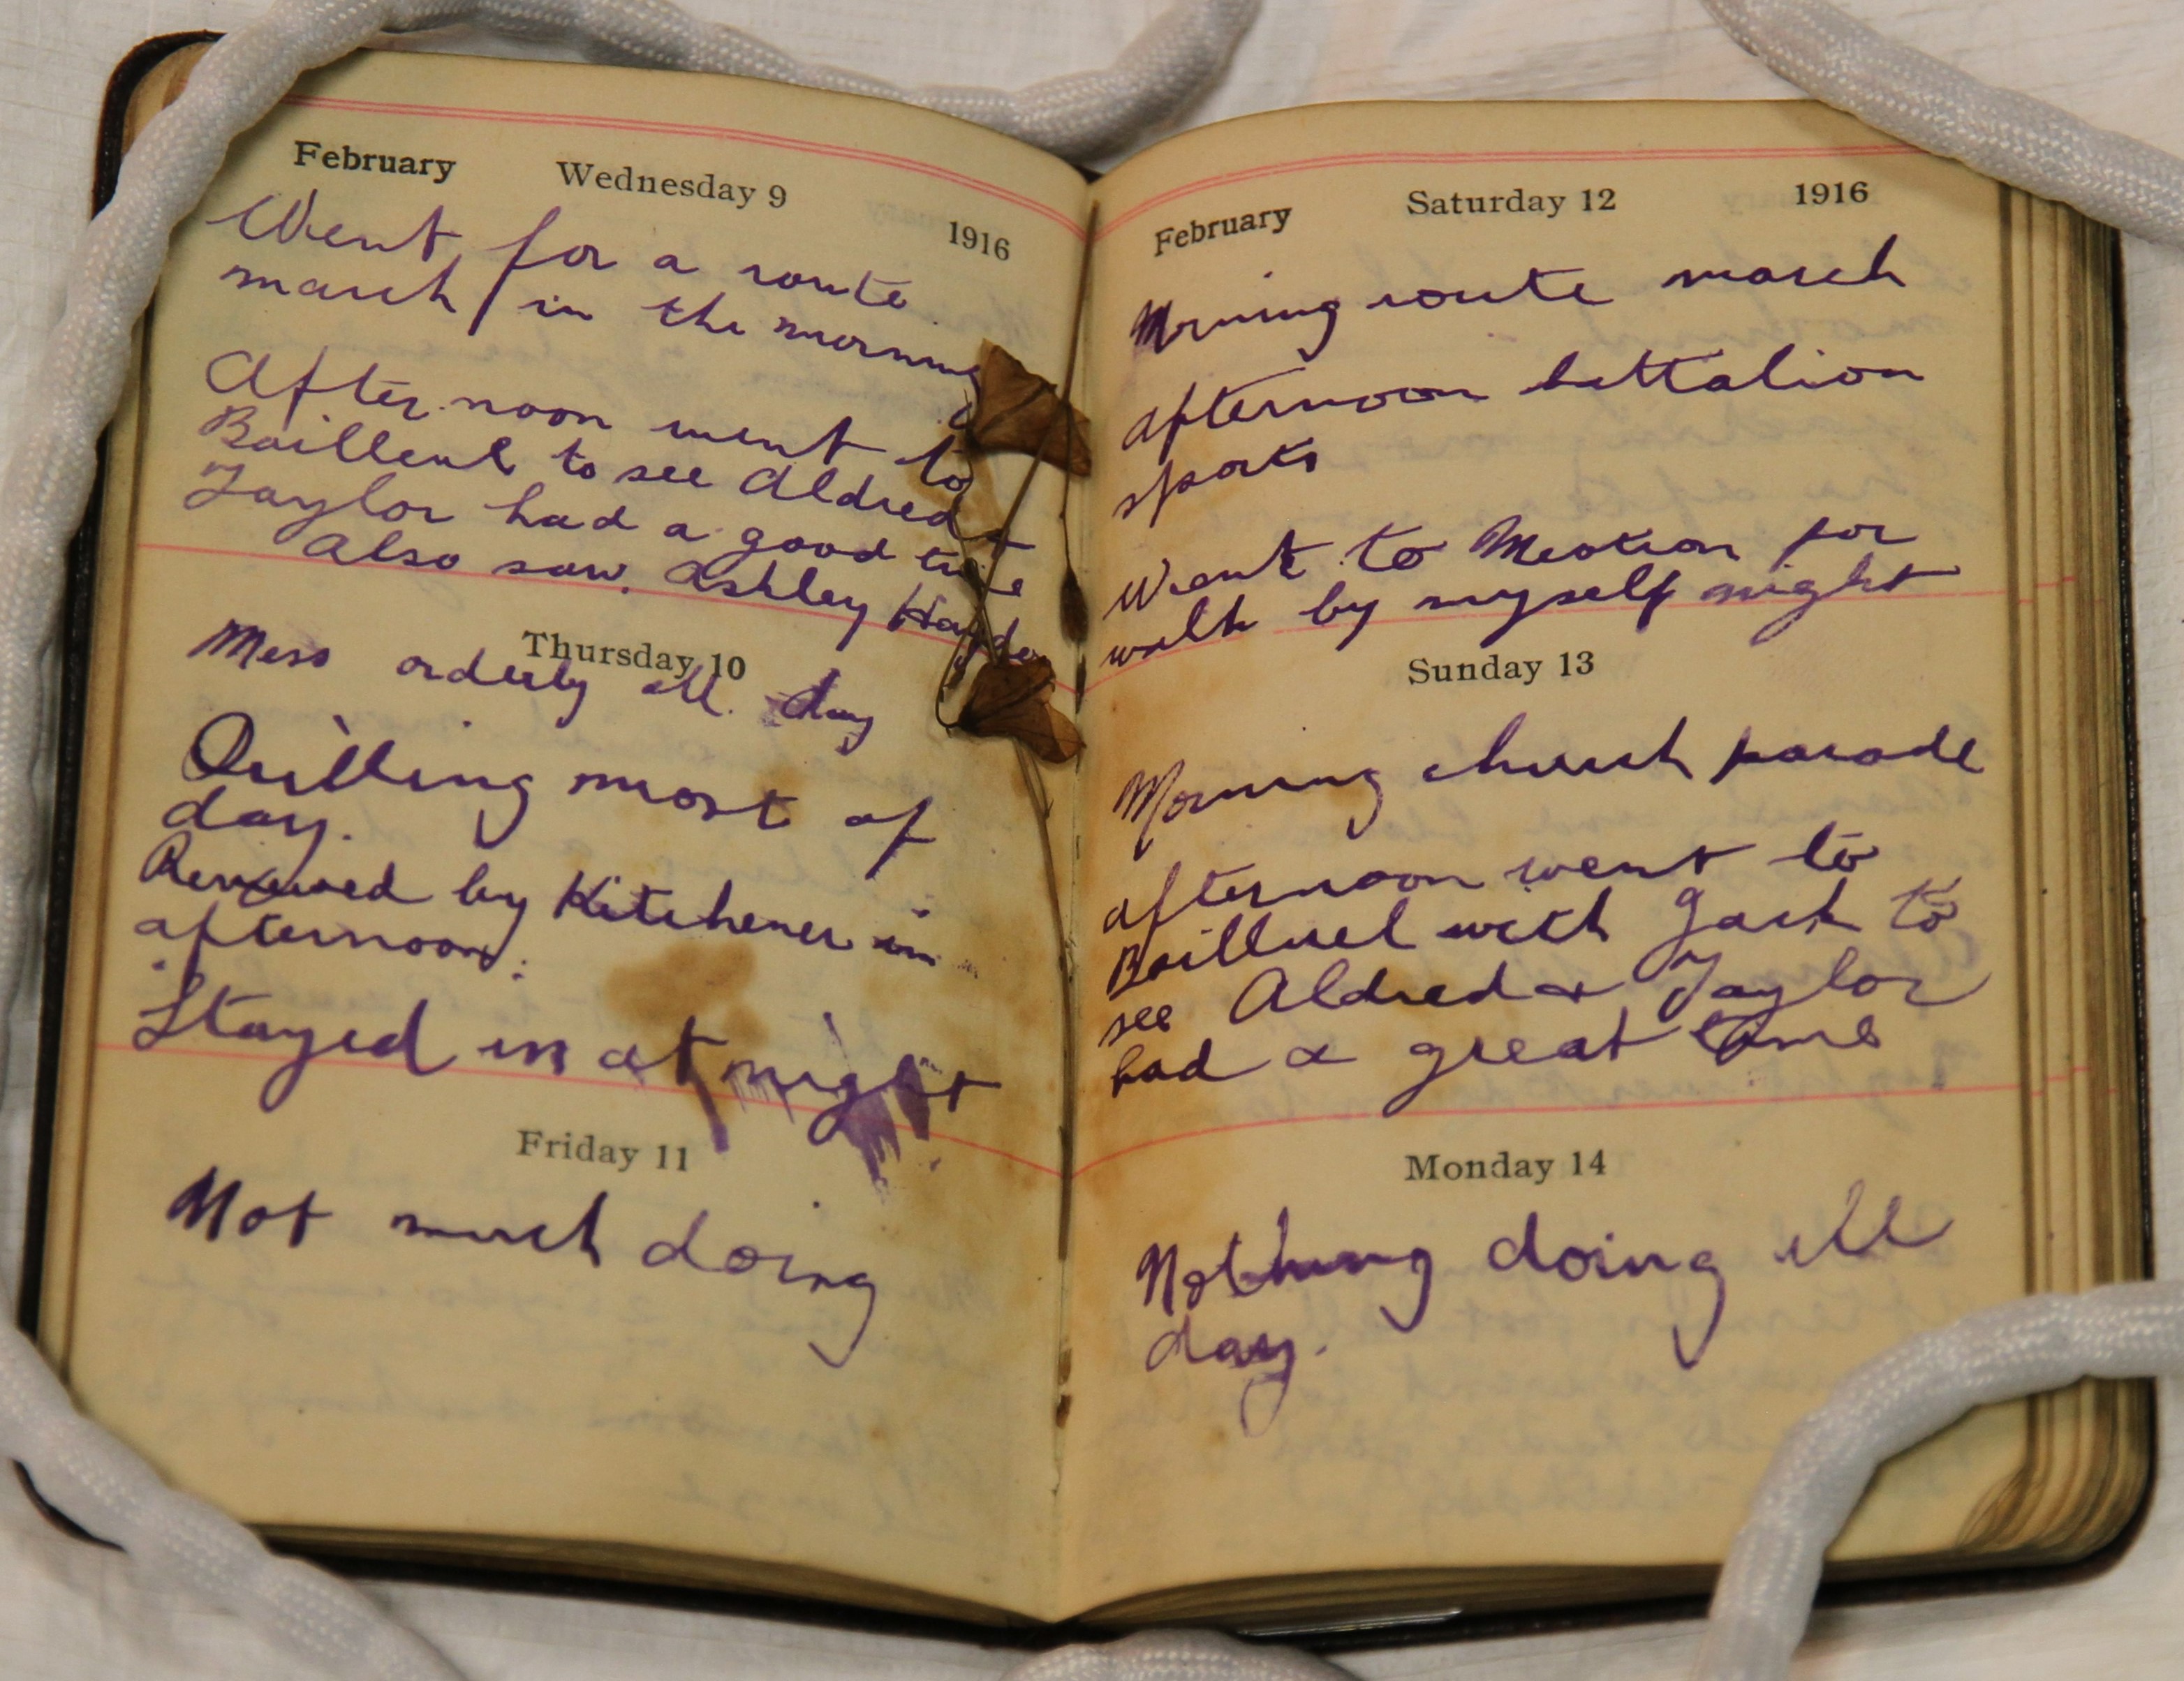 February Wednesday 9 1916
Went for a route
march in the morning
After noon went to
Bailleul to see Aldred
Taylor had a good time
Also saw Ashley
Thursday 10
Mess orderly all day
Drilling most of
day.
Reviewed by Kitchener in
afternoon.
Stayed in at night
Friday 11
Not much doing
February Saturday 12 1916
Morning route march
afternoon battalion
sports
Went to for
walk by myself night
Sunday 13
Morning church parade
afternoon went to
Bailluel with Jack to
see Aldred & Taylor
had a great time
Monday 14
Nothing doing all
day.